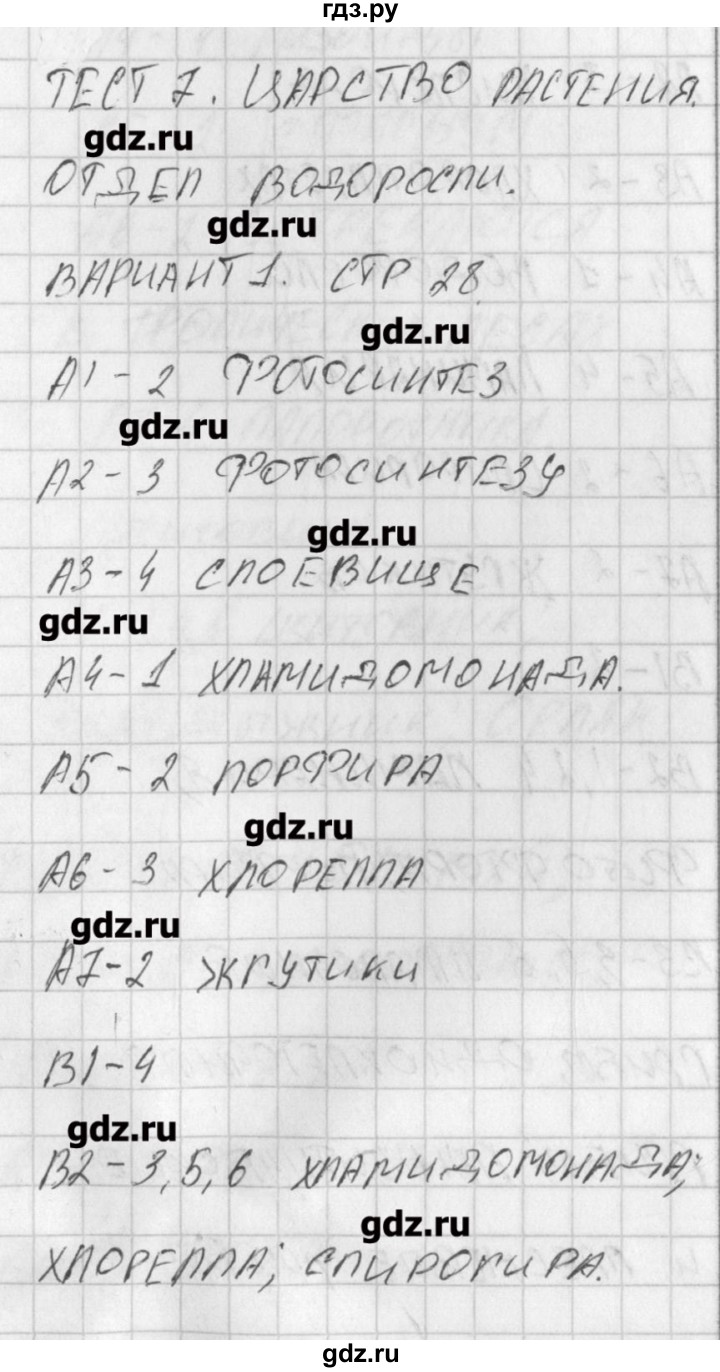 гдз.ру
ТЕСТ 7. ЦАРСТВО РАСТЕНИЯ.
gdz.ru
ОТДЕЛ ВОДОРОСЛИ.
gdz.ru
ВАРИАНТ 1. СТР 28.
gdz.ru
А1 - 2 ФОТОСИНТЕЗ
gdz.ru
А2 - 3 ФОТОСИНТЕЗУ
gdz.ru
А3 - 4 СЛОЕВИЩЕ
gdz.ru
А4 - 1 ХЛАМИДОМОНАДА.
А5 - 2 ПОРФИРА
gdz.ru
А6 - 3 ХЛОРЕЛЛА
gdz.ru
А7 - 2 ЖГУТИКИ
В1 - 4
gdz.ru
В2 - 3, 5, 6 ХЛАМИДОМОНАДА;
gdz.ru
ХЛОРЕЛЛА; СПИРОГИРА.
gdz.ru